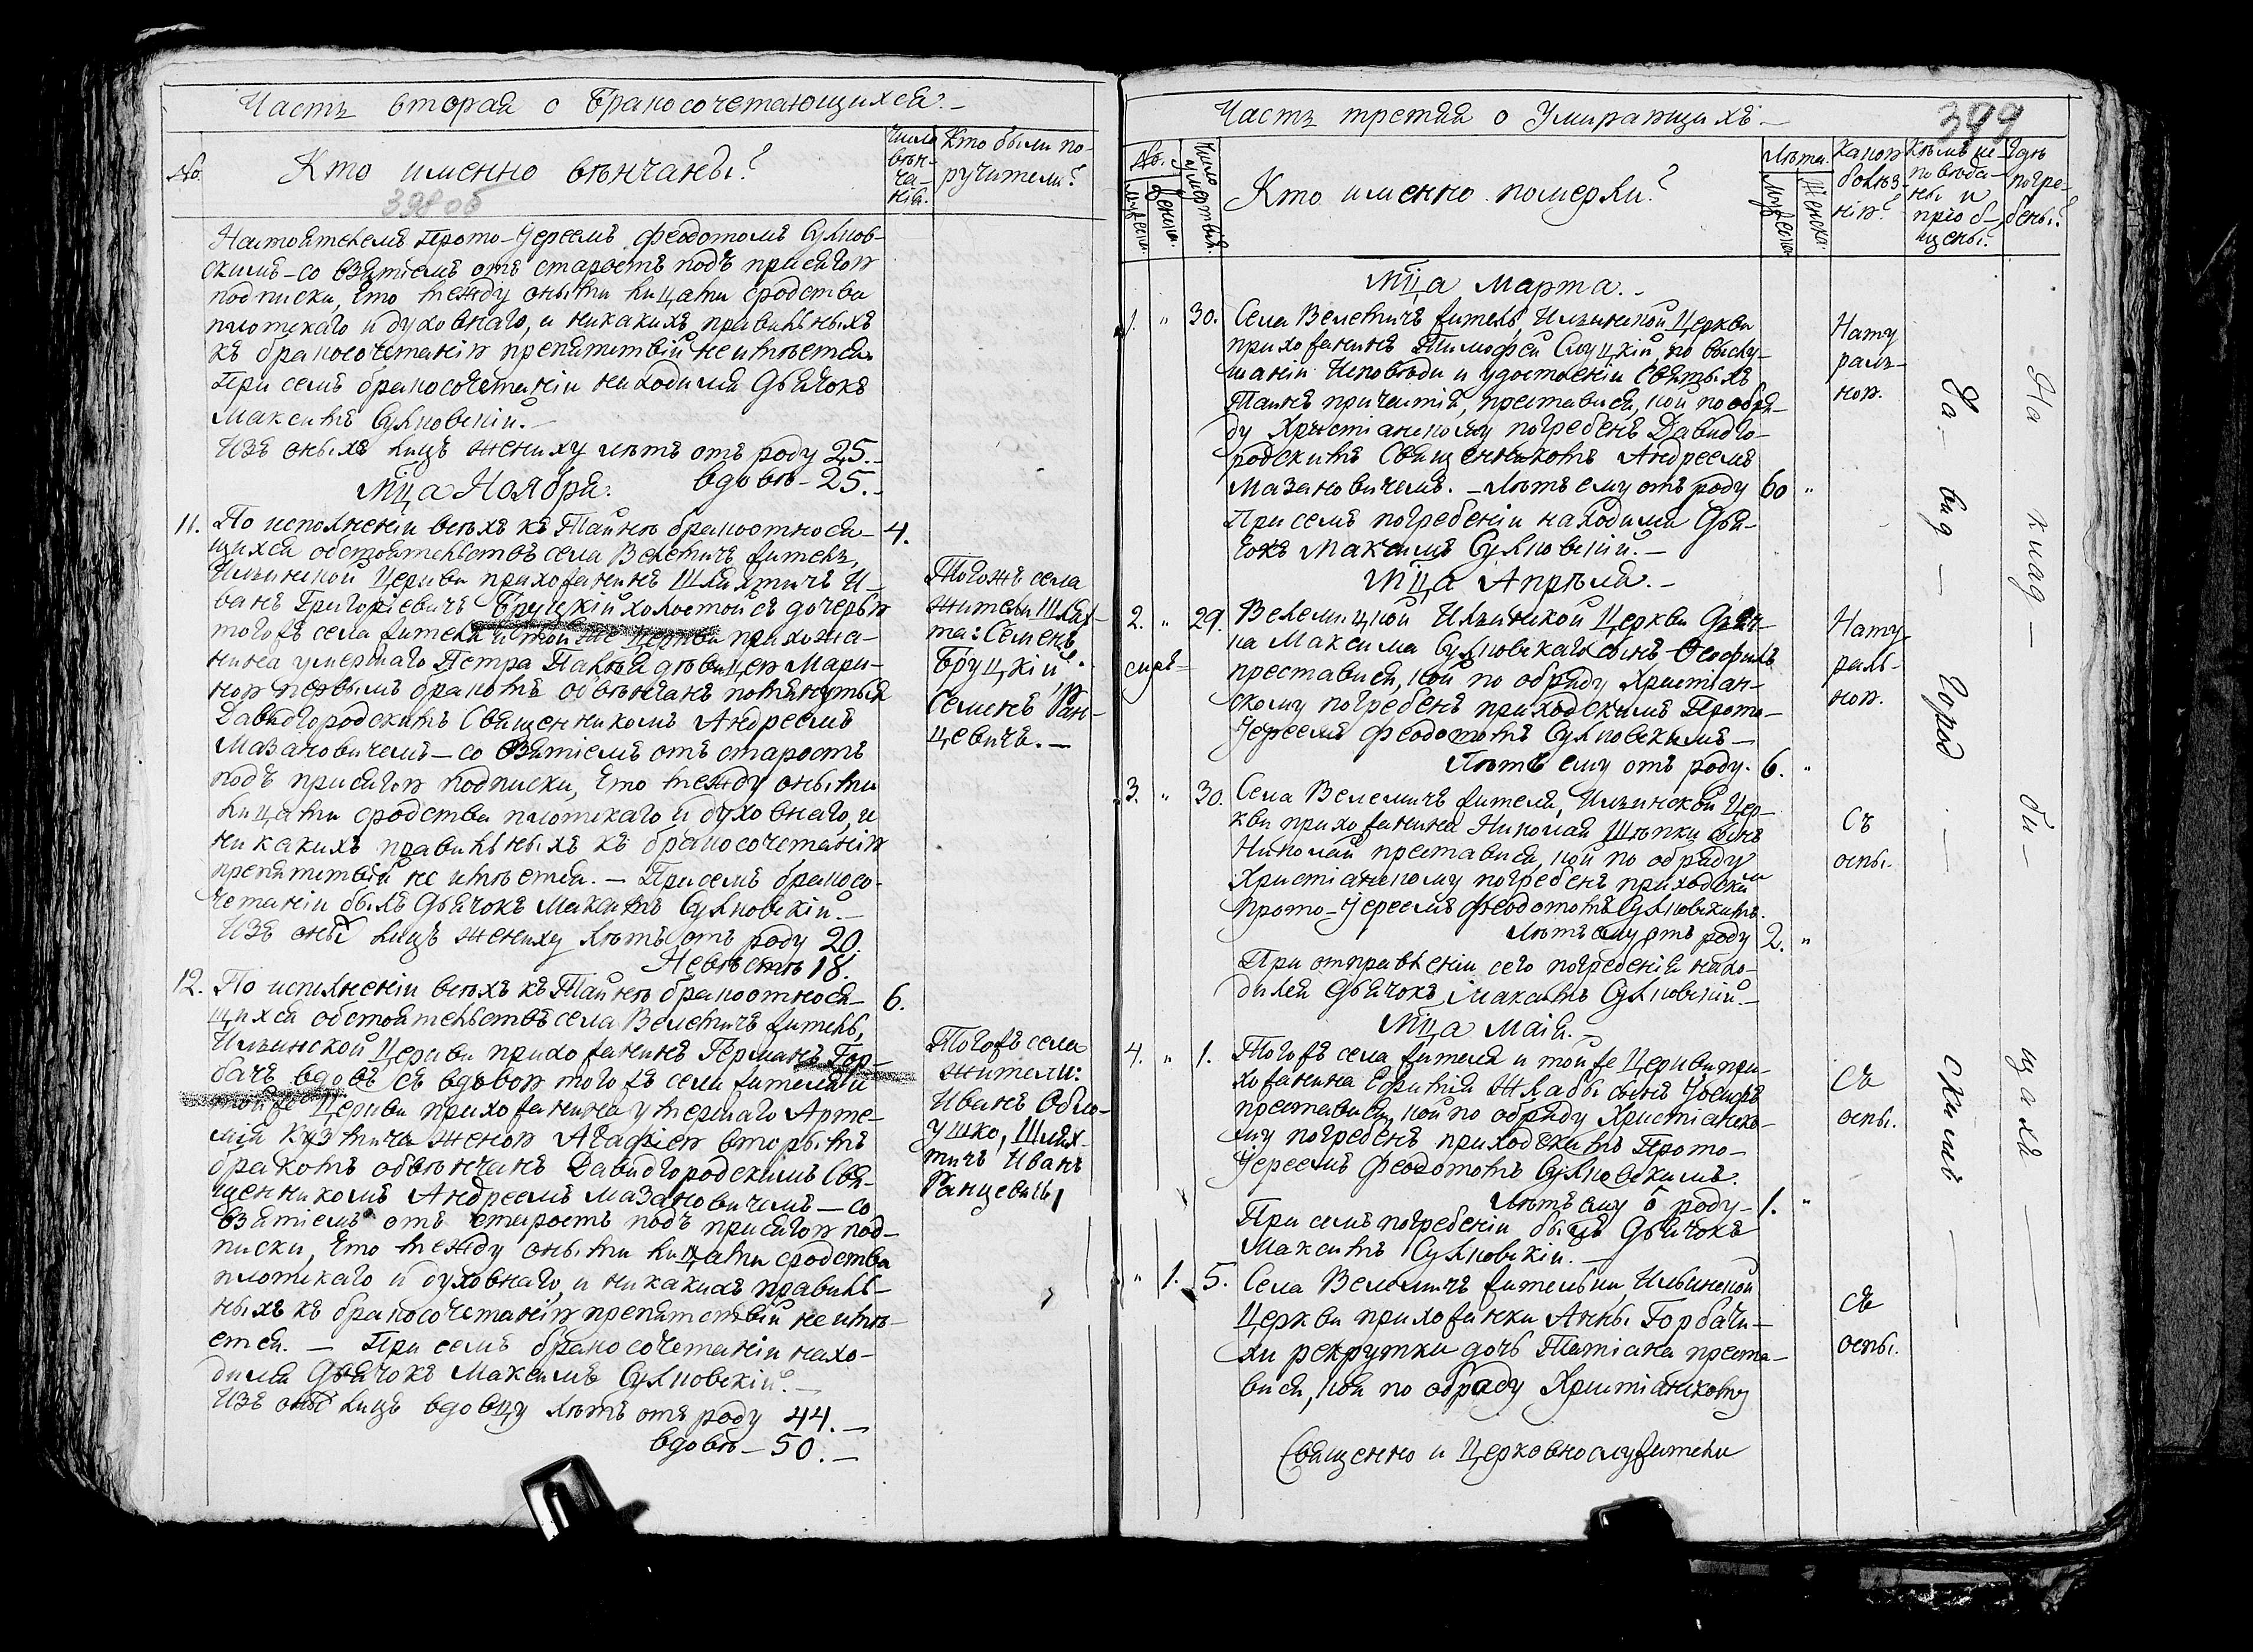 Часть вторая о бракосочетающихся.-
№.
Кто именно вѣнчаны?
Число вѣн-
ча-
нія.
Кто были по-
ручители?
398 об
Настоятелемъ Прото-Іереемъ Феодотомъ Сулков-
скимъ - со взятіемъ отъ старостъ подъ присягою
подписки, что между оными лицами сродства
плотскаго и духовнаго, и никакихъ правильныхъ
къ бракосочетанію препятствій не имѣется.
При семъ бракосочетаніи находился Дьячокъ
Максимъ Сулковскій.-
Изъ оныхъ лицъ жениху лѣтъ отъ роду 25.-
вдовѣ - 25.-
Мца Ноября.
11. По исполненіи всѣхъ къ Тайнѣ брака относя- 4.
щихся обстоятельствъ села Велемичъ житель,
Ильинской Церкви прихожанинъ Шляхтичъ И-
ванъ Григоріевичъ Бруцкій холостой съ дочерью
тогожъ села жителя и той же Церкви прихожа-
нина умершаго Петра дѣвицею Мари-
ною первымъ бракомъ обвѣнчанъ помянутый
Давидгородскимъ Священникомъ Андреемъ
Мазановичемъ - со взятіемъ отъ старостъ
подъ присягою подписки, что между оными
лицами сродства плотскаго и духовнаго, и
никакихъ правильныхъ къ бракосочетанію
препятствій не имѣется. - При семъ бракосо-
четаніи былъ Дьячокъ Максимъ Сулковскій.-
Изъ оны лицъ жениху лѣтъ отъ роду 20.
Невѣстѣ 18.
Тогожъ села
жители Шлях-
та: Семенъ
Бруцкій.
Семенъ Ран-
цевичъ. -
12. По исполненіи всѣхъ къ Тайнѣ брака относя- 6.
щихся обстоятельствъ села Велемичъ житель,
Ильинской Церкви прихожанинъ Германъ Гор-
бачъ вдовъ съ вдовою тогожъ села жителя и
той же Церкви прихожанина умершаго Арте-
мія Кузмича женою Агафіею вторымъ
бракомъ обвѣнчанъ Давидгородскимъ Свя-
щенникомъ Андреемъ Мазановичемъ - со
взятіемъ отъ старостъ подъ присягою под-
писки, что между оными лицами сродства
плотскаго и духовнаго, и никакихъ правиль-
ныхъ къ бракосочетанію препятствій не имѣ-
ется. - При семъ бракосочетаніи нахо-
дился Дьячокъ Максимъ Сулковскій.-
Изъ оны лицъ вдовцу лѣтъ отъ роду 44.-
вдовѣ - 50.-
Тогожъ села
жители:
Иванъ
Шлях-
тичъ Иванъ
Ранцевичъ
Часть третія о Умирающихъ.-
399
№.
Мужеска.
Женска.
Число умертвія.
Кто именно померли?
Лѣта.
Мужеска.
Женска.
Какою
болѣз-
нію?
Кѣмъ ис-
повѣда-
ны и
пріоб-
щены?
Гдѣ
погре-
бены?
Мца Марта.-
1. " 30. Села Велемичъ житель, Ильинской Церкви
прихожанинъ Тимофей Слуцкій, по выслу-
шаніи Исповѣди и удостоеніи Святыхъ
Таинъ причастія, преставися, кой по обря-
ду Христіанскому погребенъ Давидго-
родскимъ Священникомъ Андреемъ
Мазановичемъ. - Лѣтъ ему отъ роду 60 "
При семъ погребеніи находился Дья-
чокъ Максимъ Сулковскій.-
Нату
раль-
ною.
Мца Апрѣля.-
2. " 29. Велемицкой Ильинской Церкви Дьяч-
ка Максима Сулковскаго сынъ Феофилъ
преставися, кой по обряду Христіан-
скому погребенъ приходскимъ Прото-
Іереемъ Феодотомъ Сулковскимъ -
Лѣтъ ему отъ роду. 6. "
Нату-
раль-
ною.
3. " 30. Села Велемичъ жителя, Ильинской Цер-
кви прихожанина Николая сынъ
Николай преставися, кой по обряду
Христіанскому погребенъ приходским
Прото-Іереемъ Феодотомъ Сулковскимъ.
Лѣтъ ему отъ роду 2. "
При отправленіи сего погребенія нахо-
дился Дьячокъ Максимъ Сулковскій.-
Съ
оспы.
Мца Маія.-
4. " 1. Тогожъ села жителя и той же Церкви при-
хожанина Ефимія Жлабы сынъ Іосифъ
преставися, кой по обряду Христіанско-
му погребенъ приходскимъ Прото-
Іереемъ Феодотомъ Сулковскимъ.
Лѣтъ ему о роду - 1. "
При семъ погребеніи былъ Дьячокъ
Максимъ Сулковскій.-
Съ
оспы.
" 1. 5. Села Велемичъ жительки Ильинской
Церкви прихожанки Анны Горбачи-
хи рекрутки дочь Татіана преста-
вися, коя по обряду Христіанскому
Съ
оспы.
Да - вид - город - скимъ -
На клад - би - щахъ -
Священно и Церковнослужители